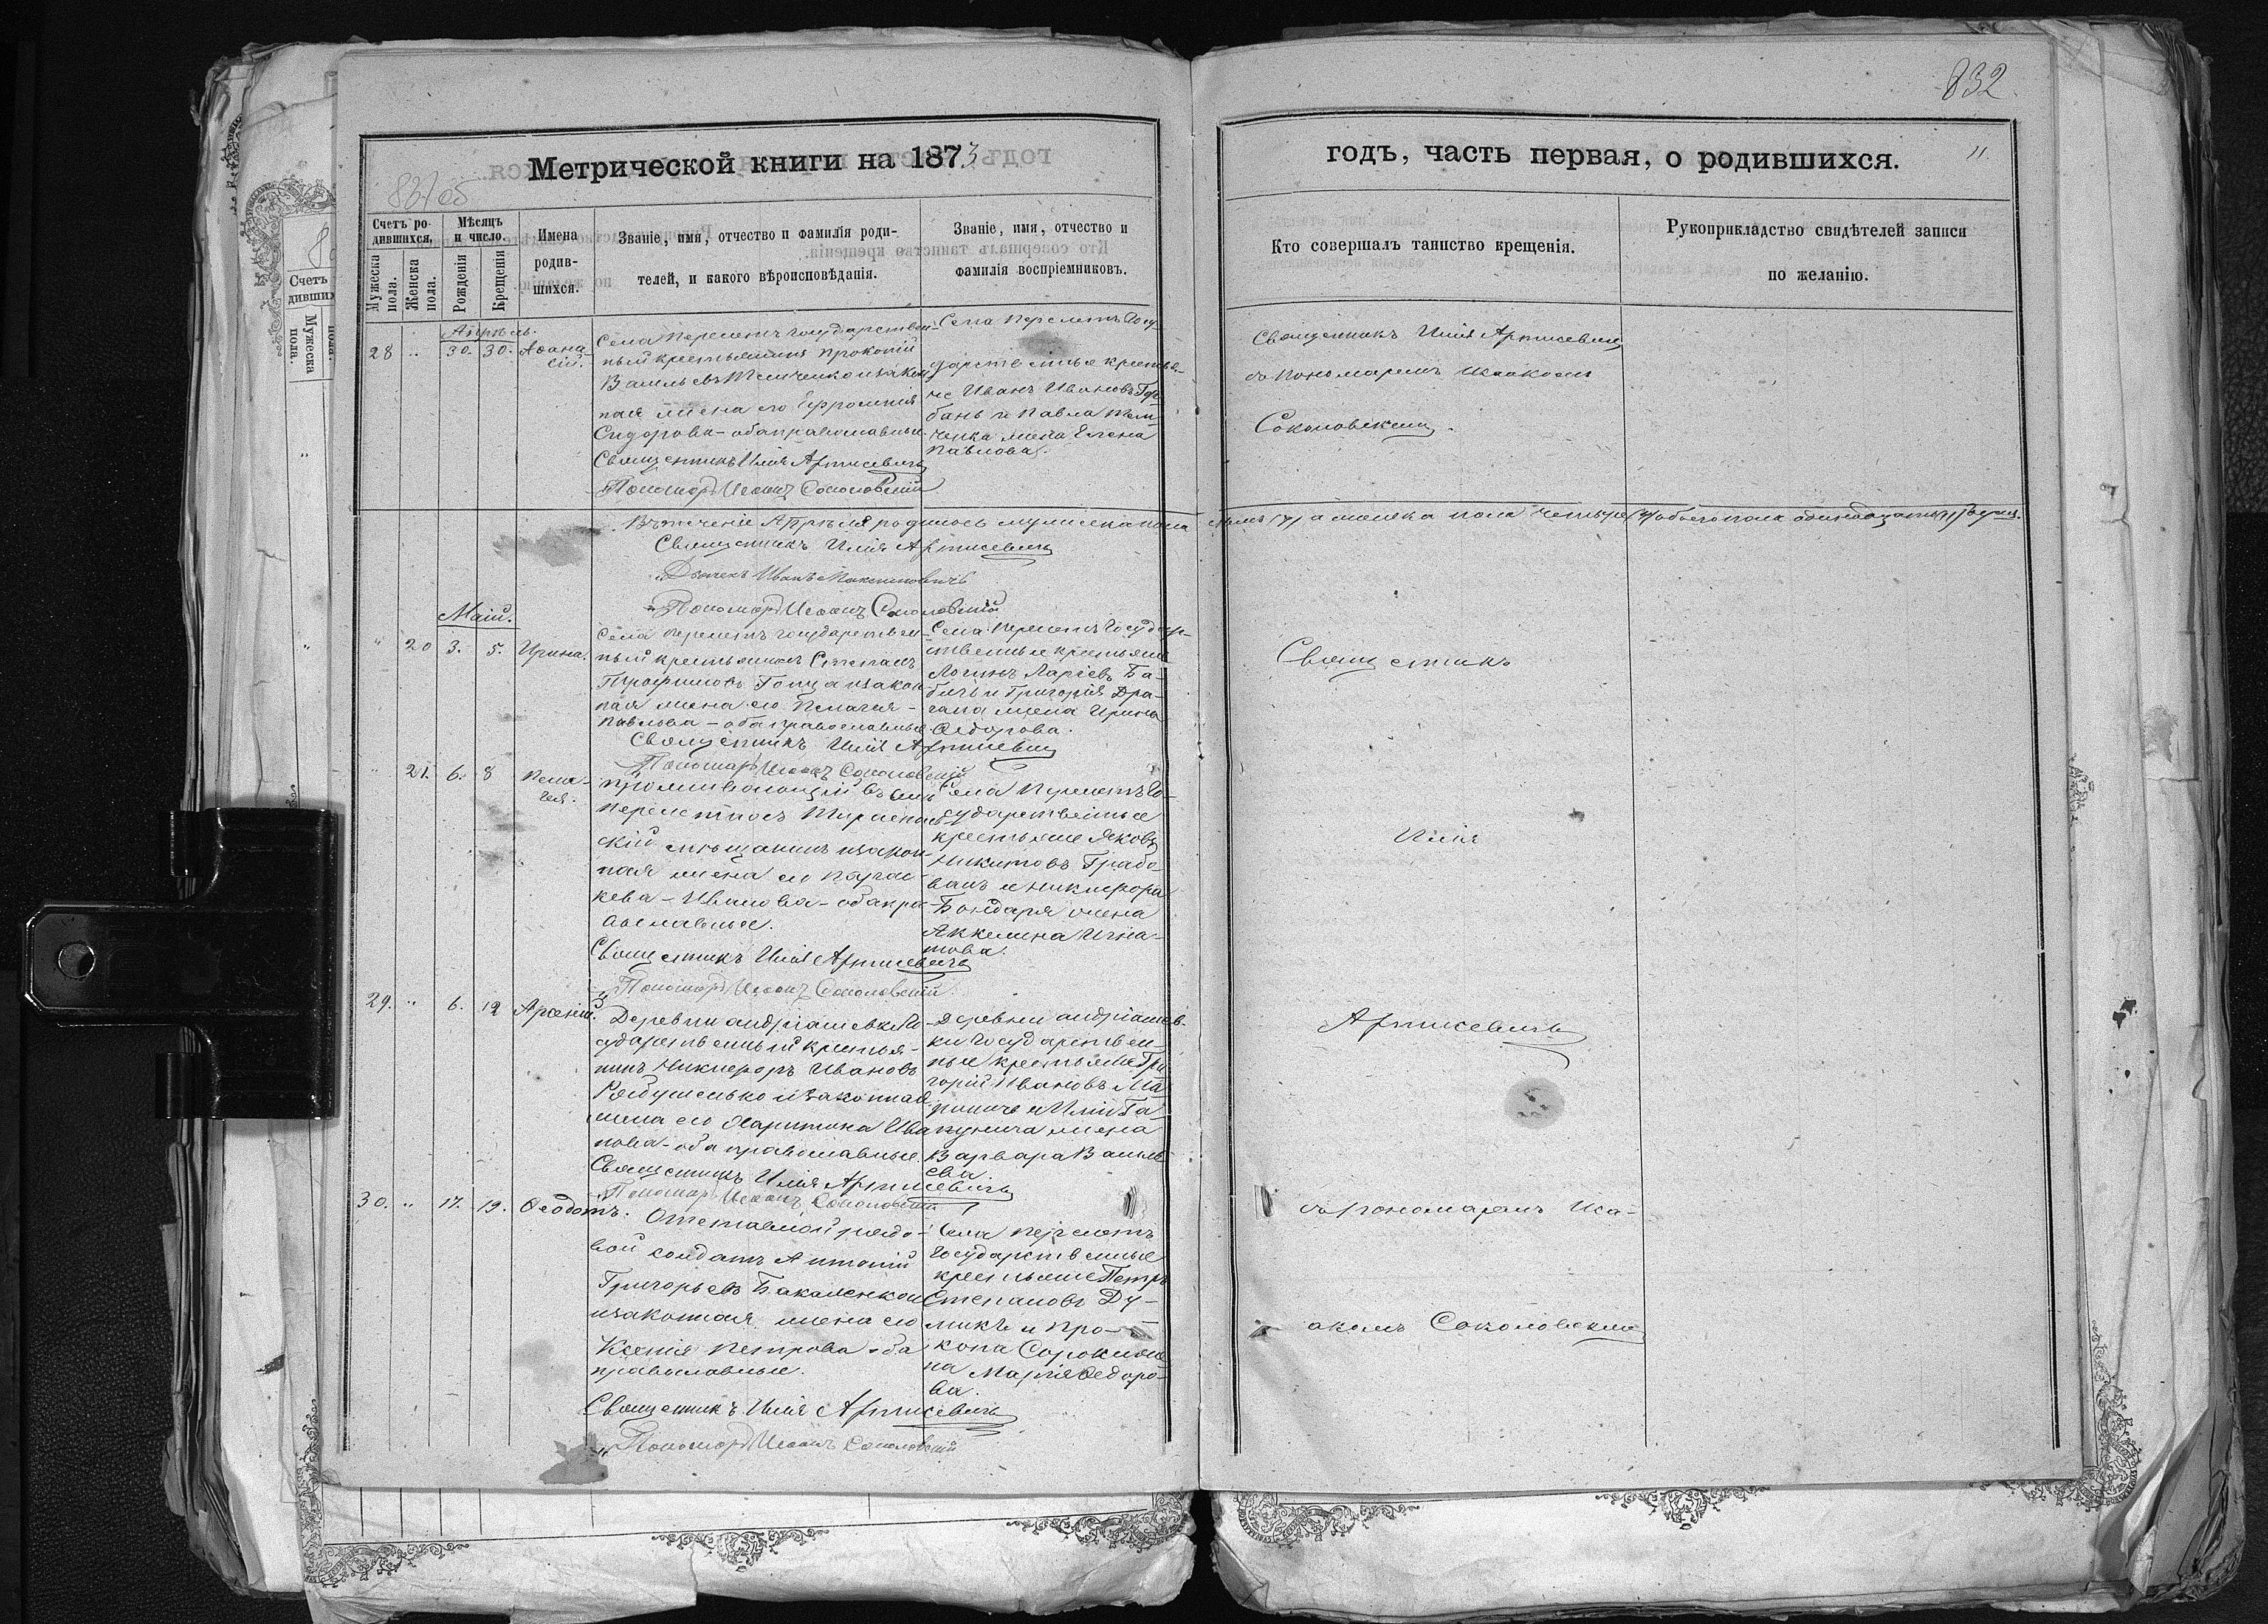 832
Метрической книги на 1873
годъ, часть первая, о родившихся.
11.
831 об
Счетъ ро-
дившихся.
Мѣсяцъ
и число.
Мужеска
пола.
Женска
пола.
Рожденія
Крещенія
Имена
родив-
шихся.
Званіе, имя, отчество и фамилія роди-
телей, и какого вѣроисповѣданія.
Званіе, имя, отчество и
фамилія воспріемниковъ.
Кто совершалъ таинство крещенія.
Рукоприкладство свидѣтелей записи
по желанію.
Апрѣль.
28 " 30. 30. Аѳана-
сій.
Села Перелетъ государствен-
ный крестьянинъ Прокопій
Васильевъ и закон-
ная жена его Ефросинія
Сидорова - оба православные.
Священникъ Илія Артисевичъ
Пономарь Исаакъ Соколовскій
Села Перелетъ Госу-
дарственные крестья-
не Иванъ Ивановъ Гор-
бань и Павла
жена Елена
Павлова.
Священникъ Илія Артисевичъ
съ Пономаремъ Исаакомъ
Соколовскимъ.
Въ теченіе Апрѣля родилось мужеска пола семь (7) а женска пола четыре (4) обоего пола одинадцать (11) душъ.
Священникъ Илія Артисевичъ
Дьячекъ Иванъ Максимовичъ
Пономарь Исаакъ Соколовскій
Маій.
" 20 3. 5. Ирина.
Села Перелетъ государствен-
ный крестьянинъ Степанъ
Трофимовъ Гопца и закон-
ная жена его Пелагія -
Павлова - оба православные
Священникъ Илія Артисевичъ
Пономарь Исаакъ Соколовскій
Села Перелетъ Государ-
ственные крестьяне
Логинъ Ларіевъ Ба-
бичъ и Григорія Дра-
гана жена Ирина
Ѳедорова.
Священникъ
" 21. 6. 8 Пела-
гея.
Проживающій въ селѣ
Перелетахъ Тирасполь-
скій мѣщанинъ и закон-
ная жена его Парас-
кева - Иванова - оба пра-
вославные.
Священникъ Илія Артисевичъ
Пономарь Исаакъ Соколовскій
Села Перелетъ Го-
сударственные
крестьяне Яковъ
Никитовъ Грабо-
ванъ и Никифора
Бондаря жена
Аккелина Игна-
това.
Илія
29. " 6. 12 Арсеній.
Деревни Андріашевки Го-
сударственный крестья-
нинъ Никифоръ Ивановъ
и законная
жена его Харитина Ива-
нова - оба православные.
Священникъ Илія Артисевичъ
Пономарь Исаакъ Соколовскій
Деревни Андріашев-
ки Государствен-
ные крестьяне Гри-
горій Ивановъ Ма-
и Иліи Га-
жена
Варвара Василь-
ева.
Артисевичъ
30. " 17. 19. Ѳеодотъ.
Отставной рядо-
вой солдатъ Антоній
Григорьевъ Бакаленко и
законная жена его
Ксенія Петрова оба
православные.
Священникъ Илія Артисевичъ
Пономарь Исаакъ Соколовскій
Села Перелетъ
Государственные
крестьяне Петръ
Степановъ Ду-
микъ и Про-
копа
на Марія Ѳедоро-
ва.
съ Пономаремъ Иса-
акомъ Соколовскимъ
Счетъ
дивших
Мужеска
пола.